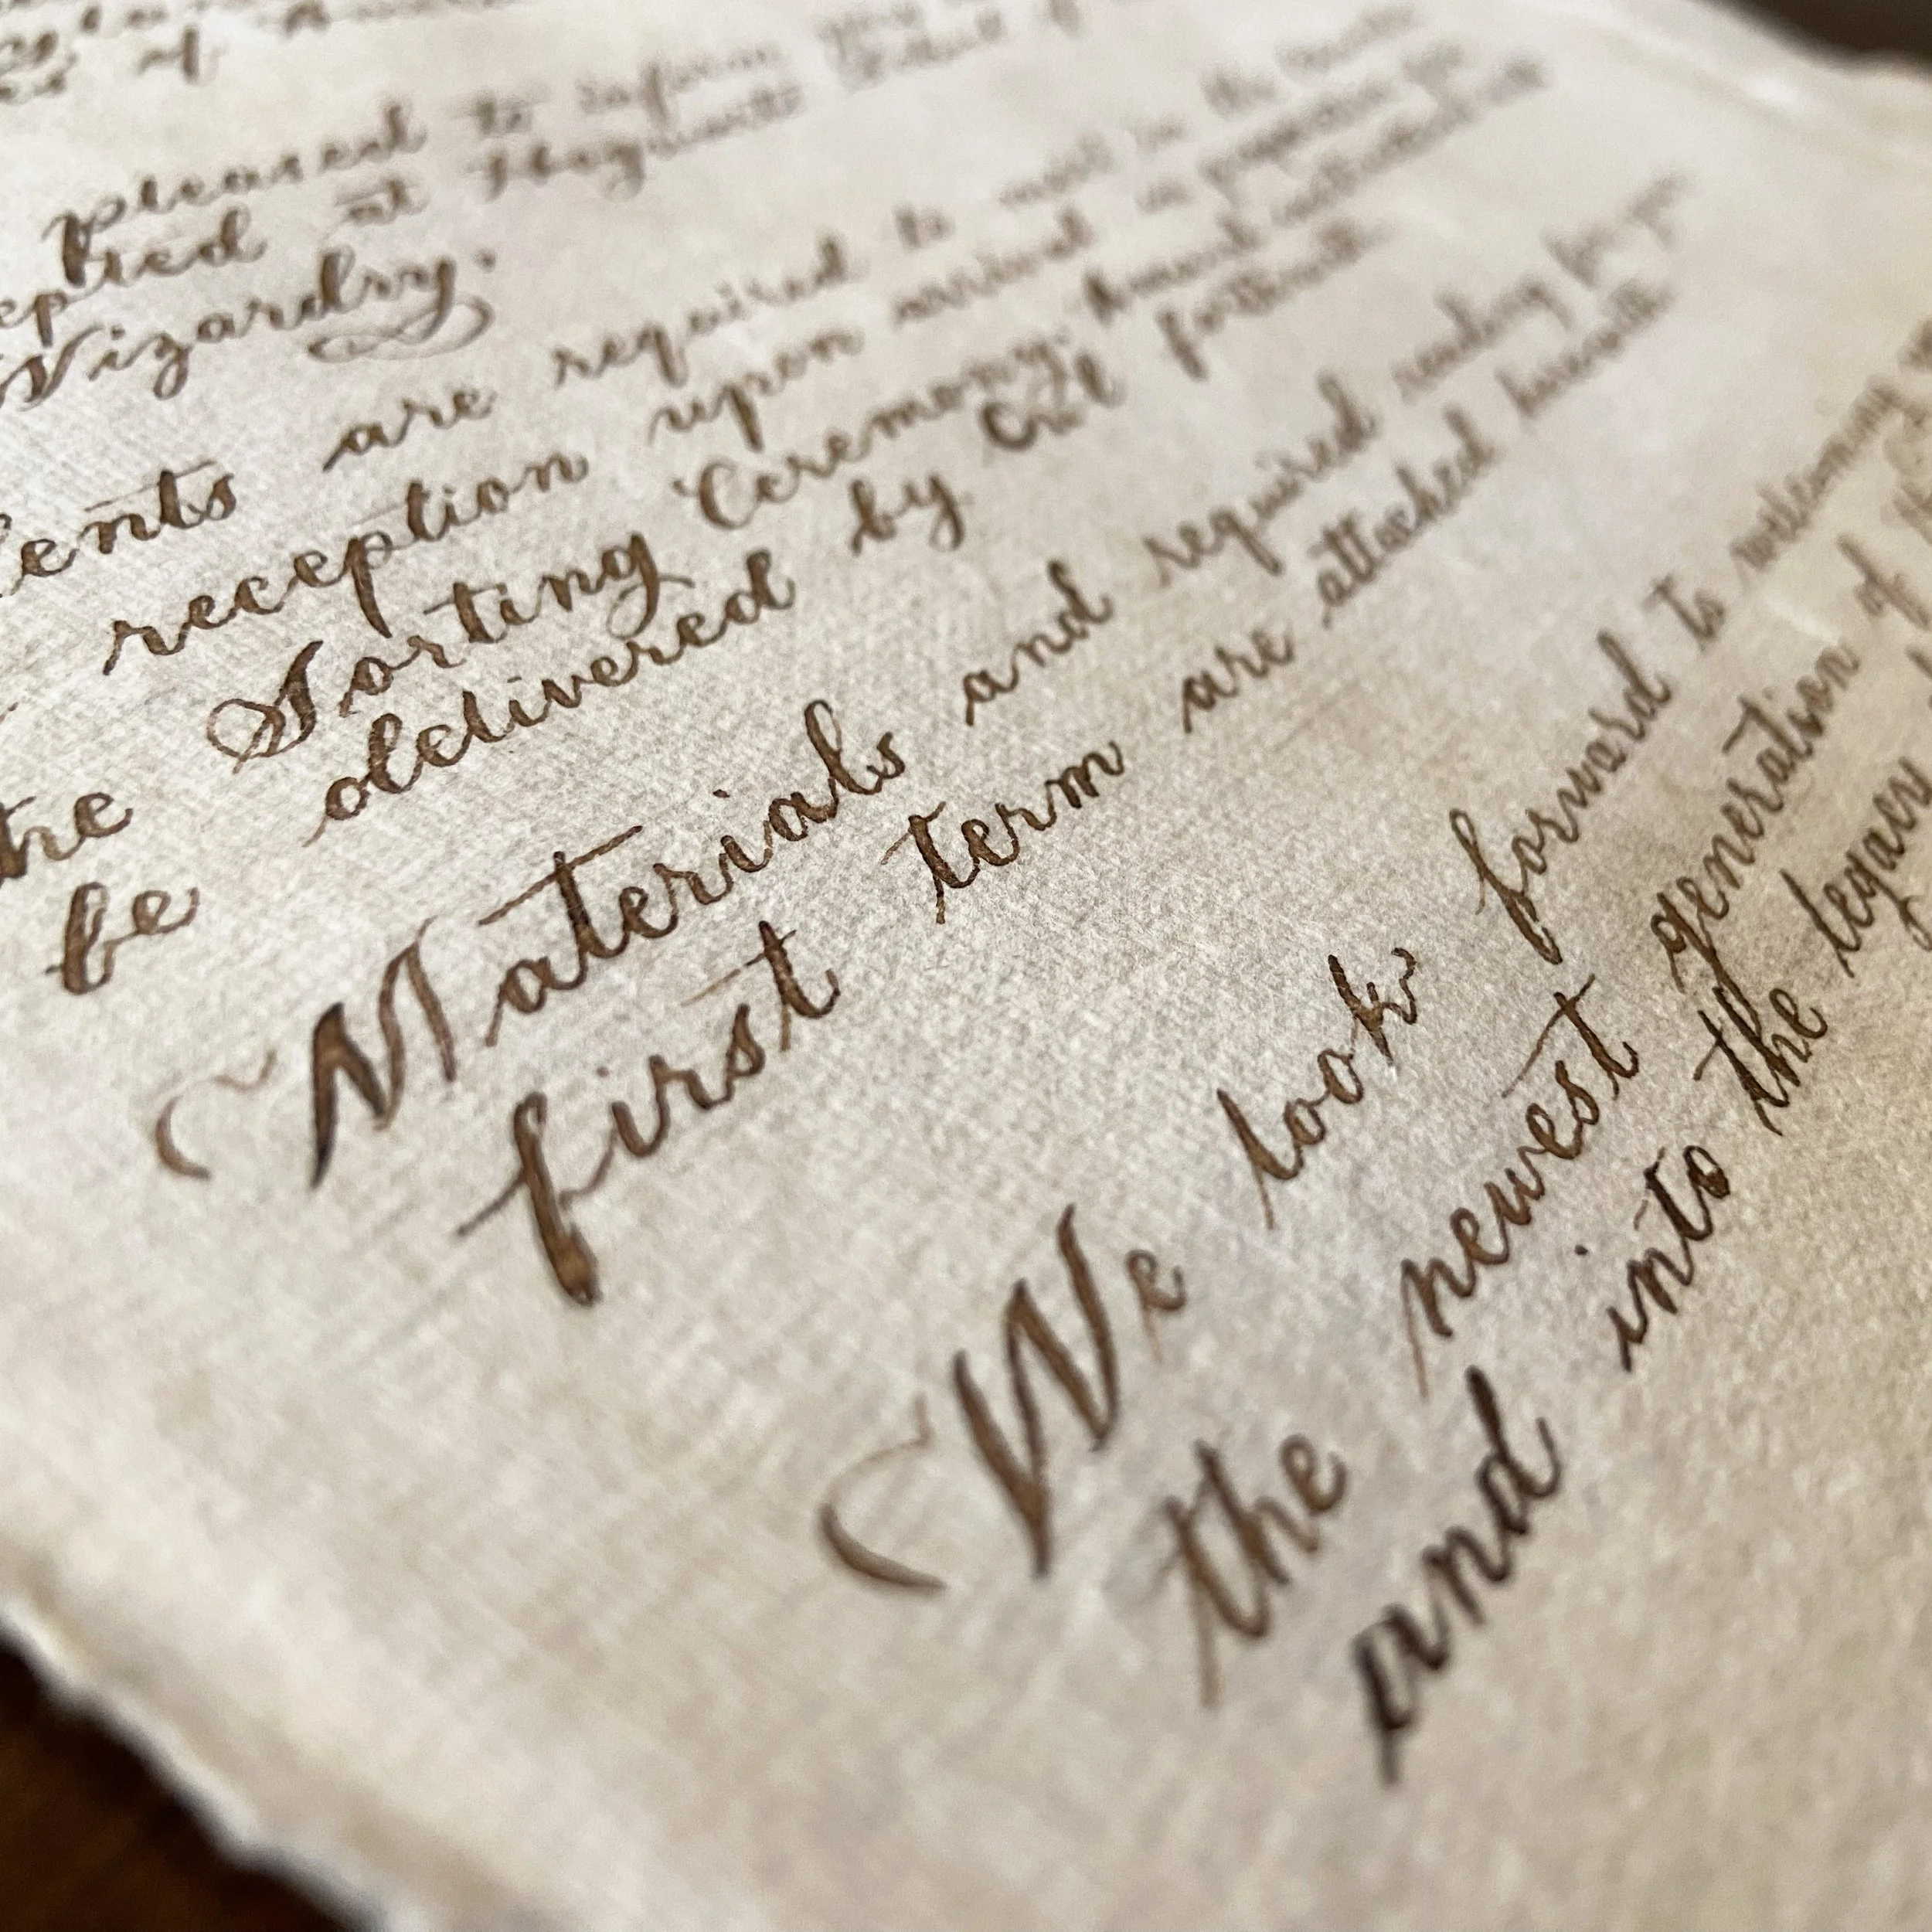 of
pleased to inform you
at Hogwarts School of
Wizardry.
are required to meet in the
reception upon arrival in preparation for
the Sorting Ceremony.
be delivered by Owl forthwith.
Materials and required reading for your
first term are attached herewith.
We look forward to welcoming
the newest generation of
and into the legacy